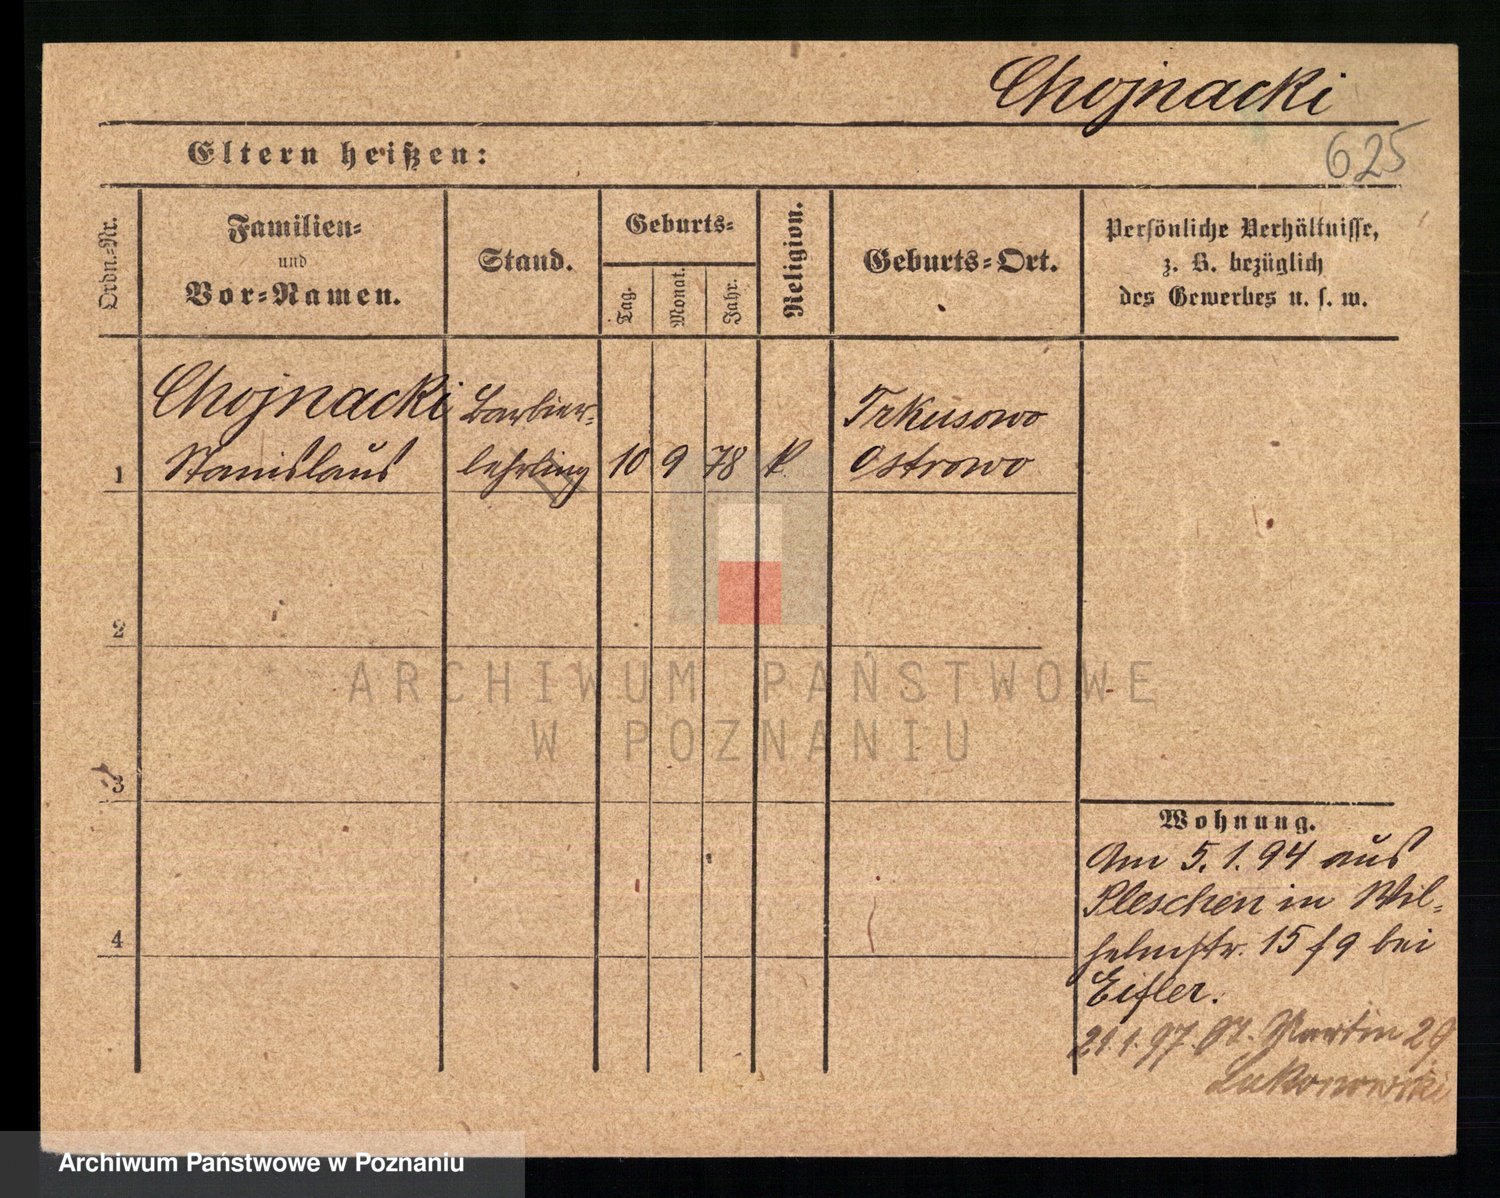 Chojnacki
625
Eltern heißen:
Ordn.-Nr.
Familien-
und
Vor-Namen.
Stand.
Geburts-
Tag.
Monat.
Jahr.
Religion.
Geburts-Ort.
Persönliche Verhältnisse,
z. B. bezüglich
des Gewerbes u. s. w.
Chojnacki Barbier-
Stanislaus lehrling 10 9 78 k.
Ostrowo
1
2
3
4
Wohnung.
Am 5. 1. 94 aus
Pleschen in Wil-
helmstr. 15 f 9 bei
Eifler.
21.1.97. St. Martin 29
Lukonowski
ARCHIWUM PAŃSTWOWE
W POZNANIU
Archiwum Państwowe w Poznaniu